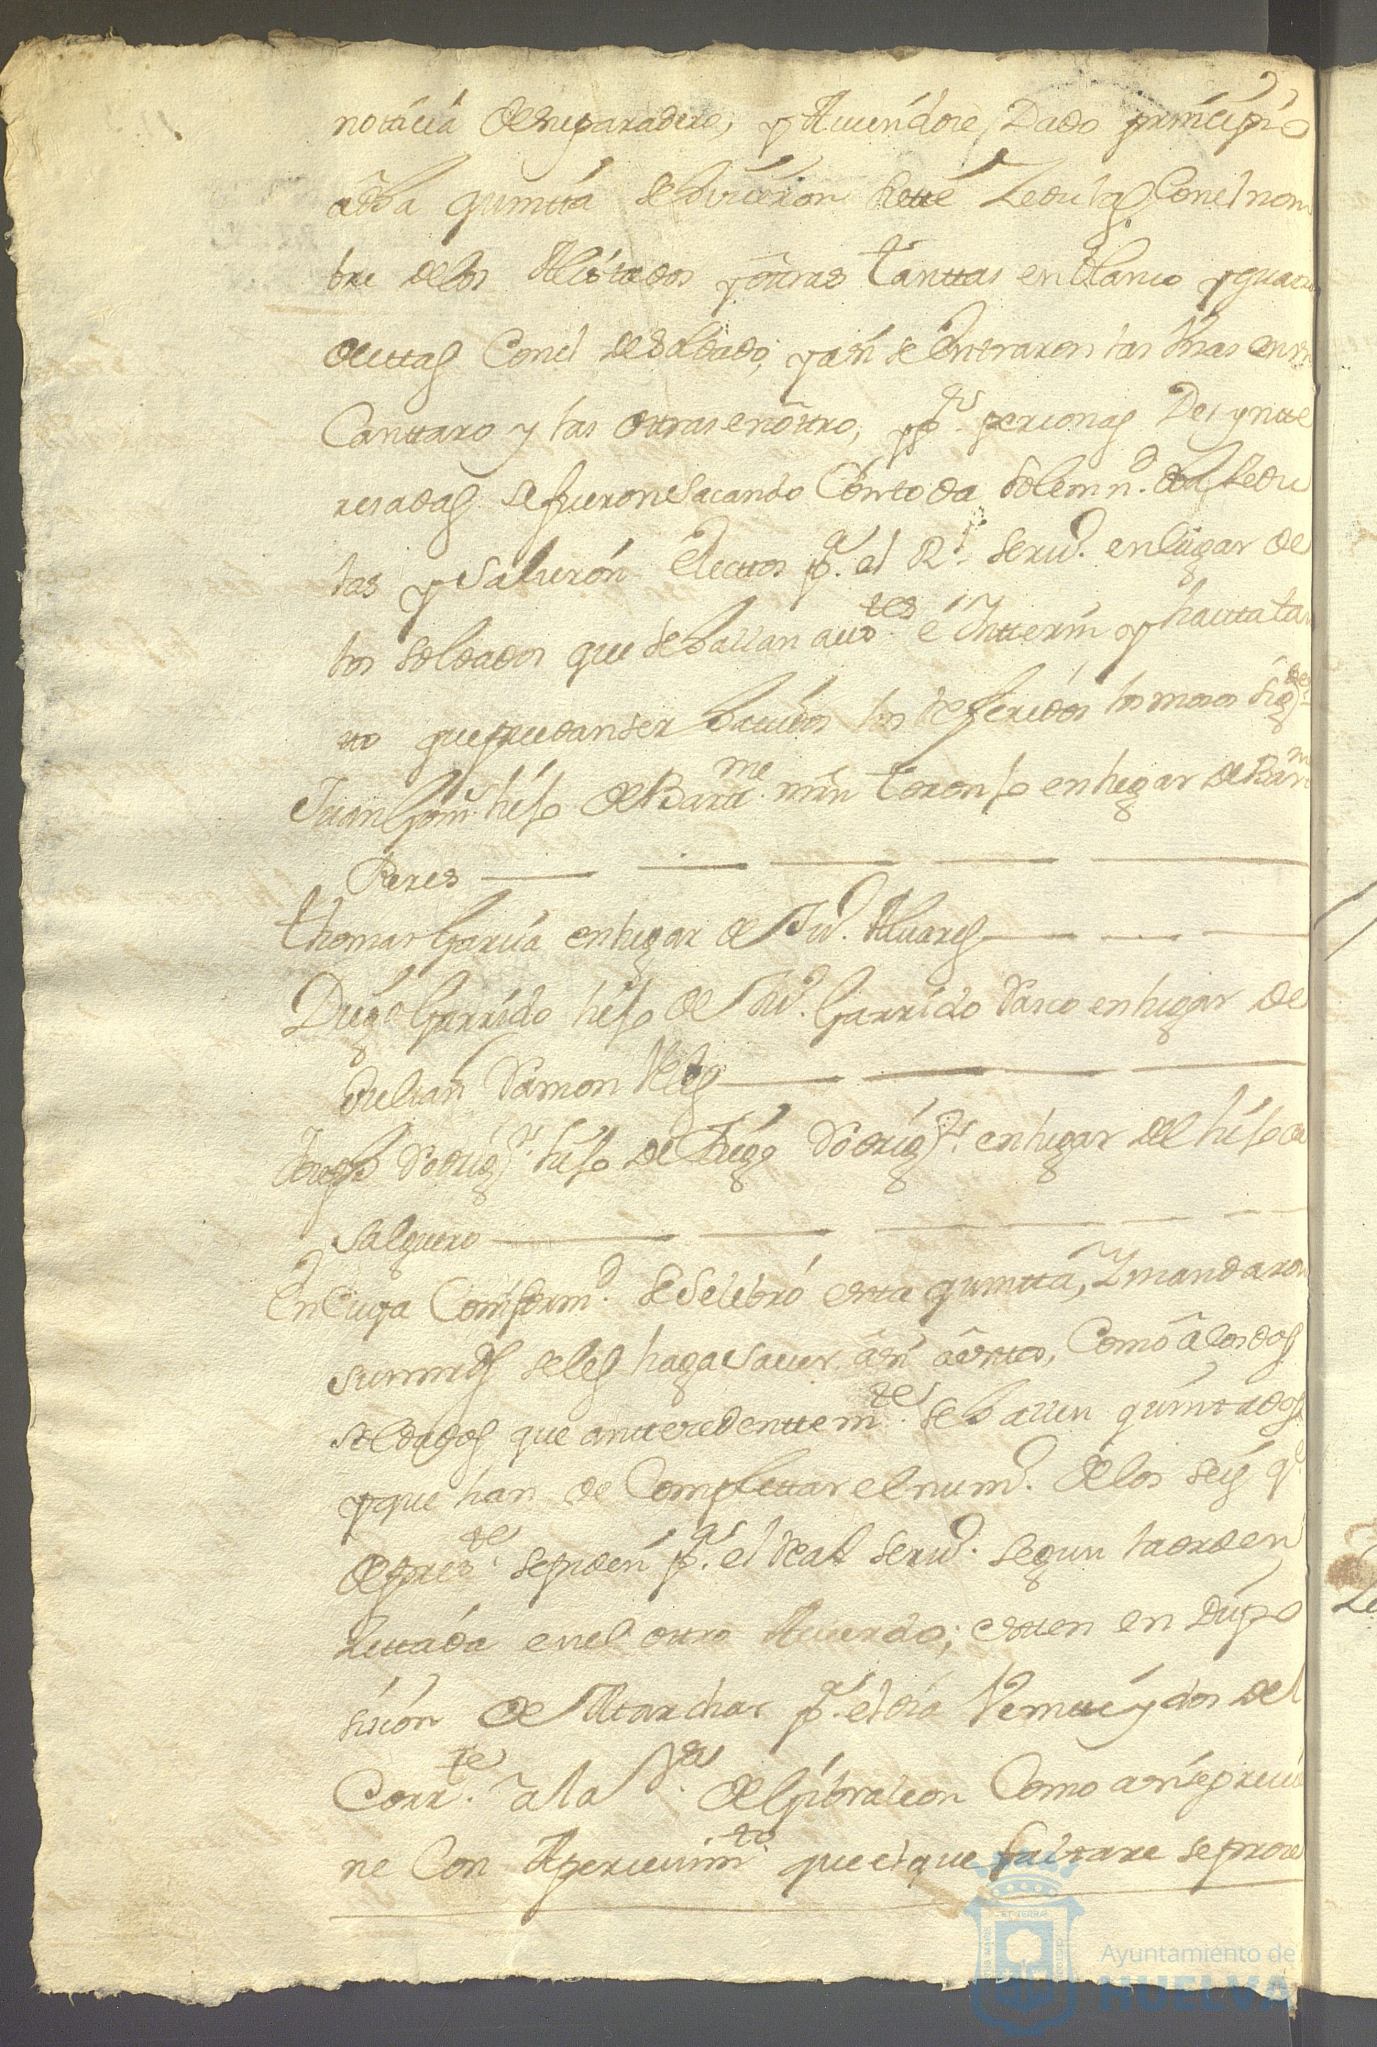 noticia de su paradero, y haviendose Dado principio
a dha quintta se hicieron siette Zedulas Con el nom
bre de los Alistados y ôtras tanttas en blanco y quatro
de ettas Con el de soldado, y asi se entraron las Unas en un
Canttaro y las ottras en ôttro, y pr personas Desyntte
resadas se fueron sacando Con toda solemnd. dhas Zedu
las y salieron Electtos pa. el Rl. servo. en lugar de
los soldados que se hallan autes. é Ýntterin y hastta tan
to que puedan ser havidos los referidos los mosos Sigtes
Juan Gom hijo de Bartme. mrn toronjo en lugar de Barme
Peres
thomas Garcia en lugar de Juo. Alvares
Diego Garrido hijo de Juo. Garrido Vasco en lugar de
Julian Ramon Veles
Joseph Rodrigs. hijo de Diego Rodrigs. en lugar del hijo de
Salguero
En Cuya Conformd. se Selebró esta quintta, Y mandaron
sus mrds se les haga saver âsi â estos, Como â los dos
soldados que anttecedenttemte. se hallan quinttados
y que han de Complettar el numo. de los seis qe.
de preste. se piden pa. el Real servo. segun la orden
Zittada en el ottro Acuerdo; esten en Dispo
sision de Marchar pa. el dia Veintte y dos del
Corrte. a la Va. de Gibraleon Como asi se previe
ne Con Apercevimto. que el que faltare se proce
Ayuntamiento de
HUELVA